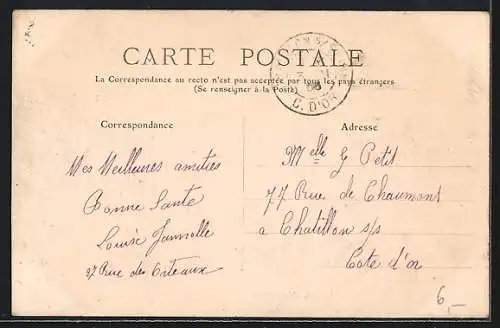 CARTE POSTALE
La Correspondance au recto n'est pas acceptée par tous les pays étrangers
(Se renseigner à la Poste)
C. D'OR
Correspondance
Mes Meilleures amities
Bonne Sante
Louise
27 Rue des Criteaux
Adresse
Melle G Petit
77 Rue de Chaumont
a Chatillon s/s
Cote d'or
6,-